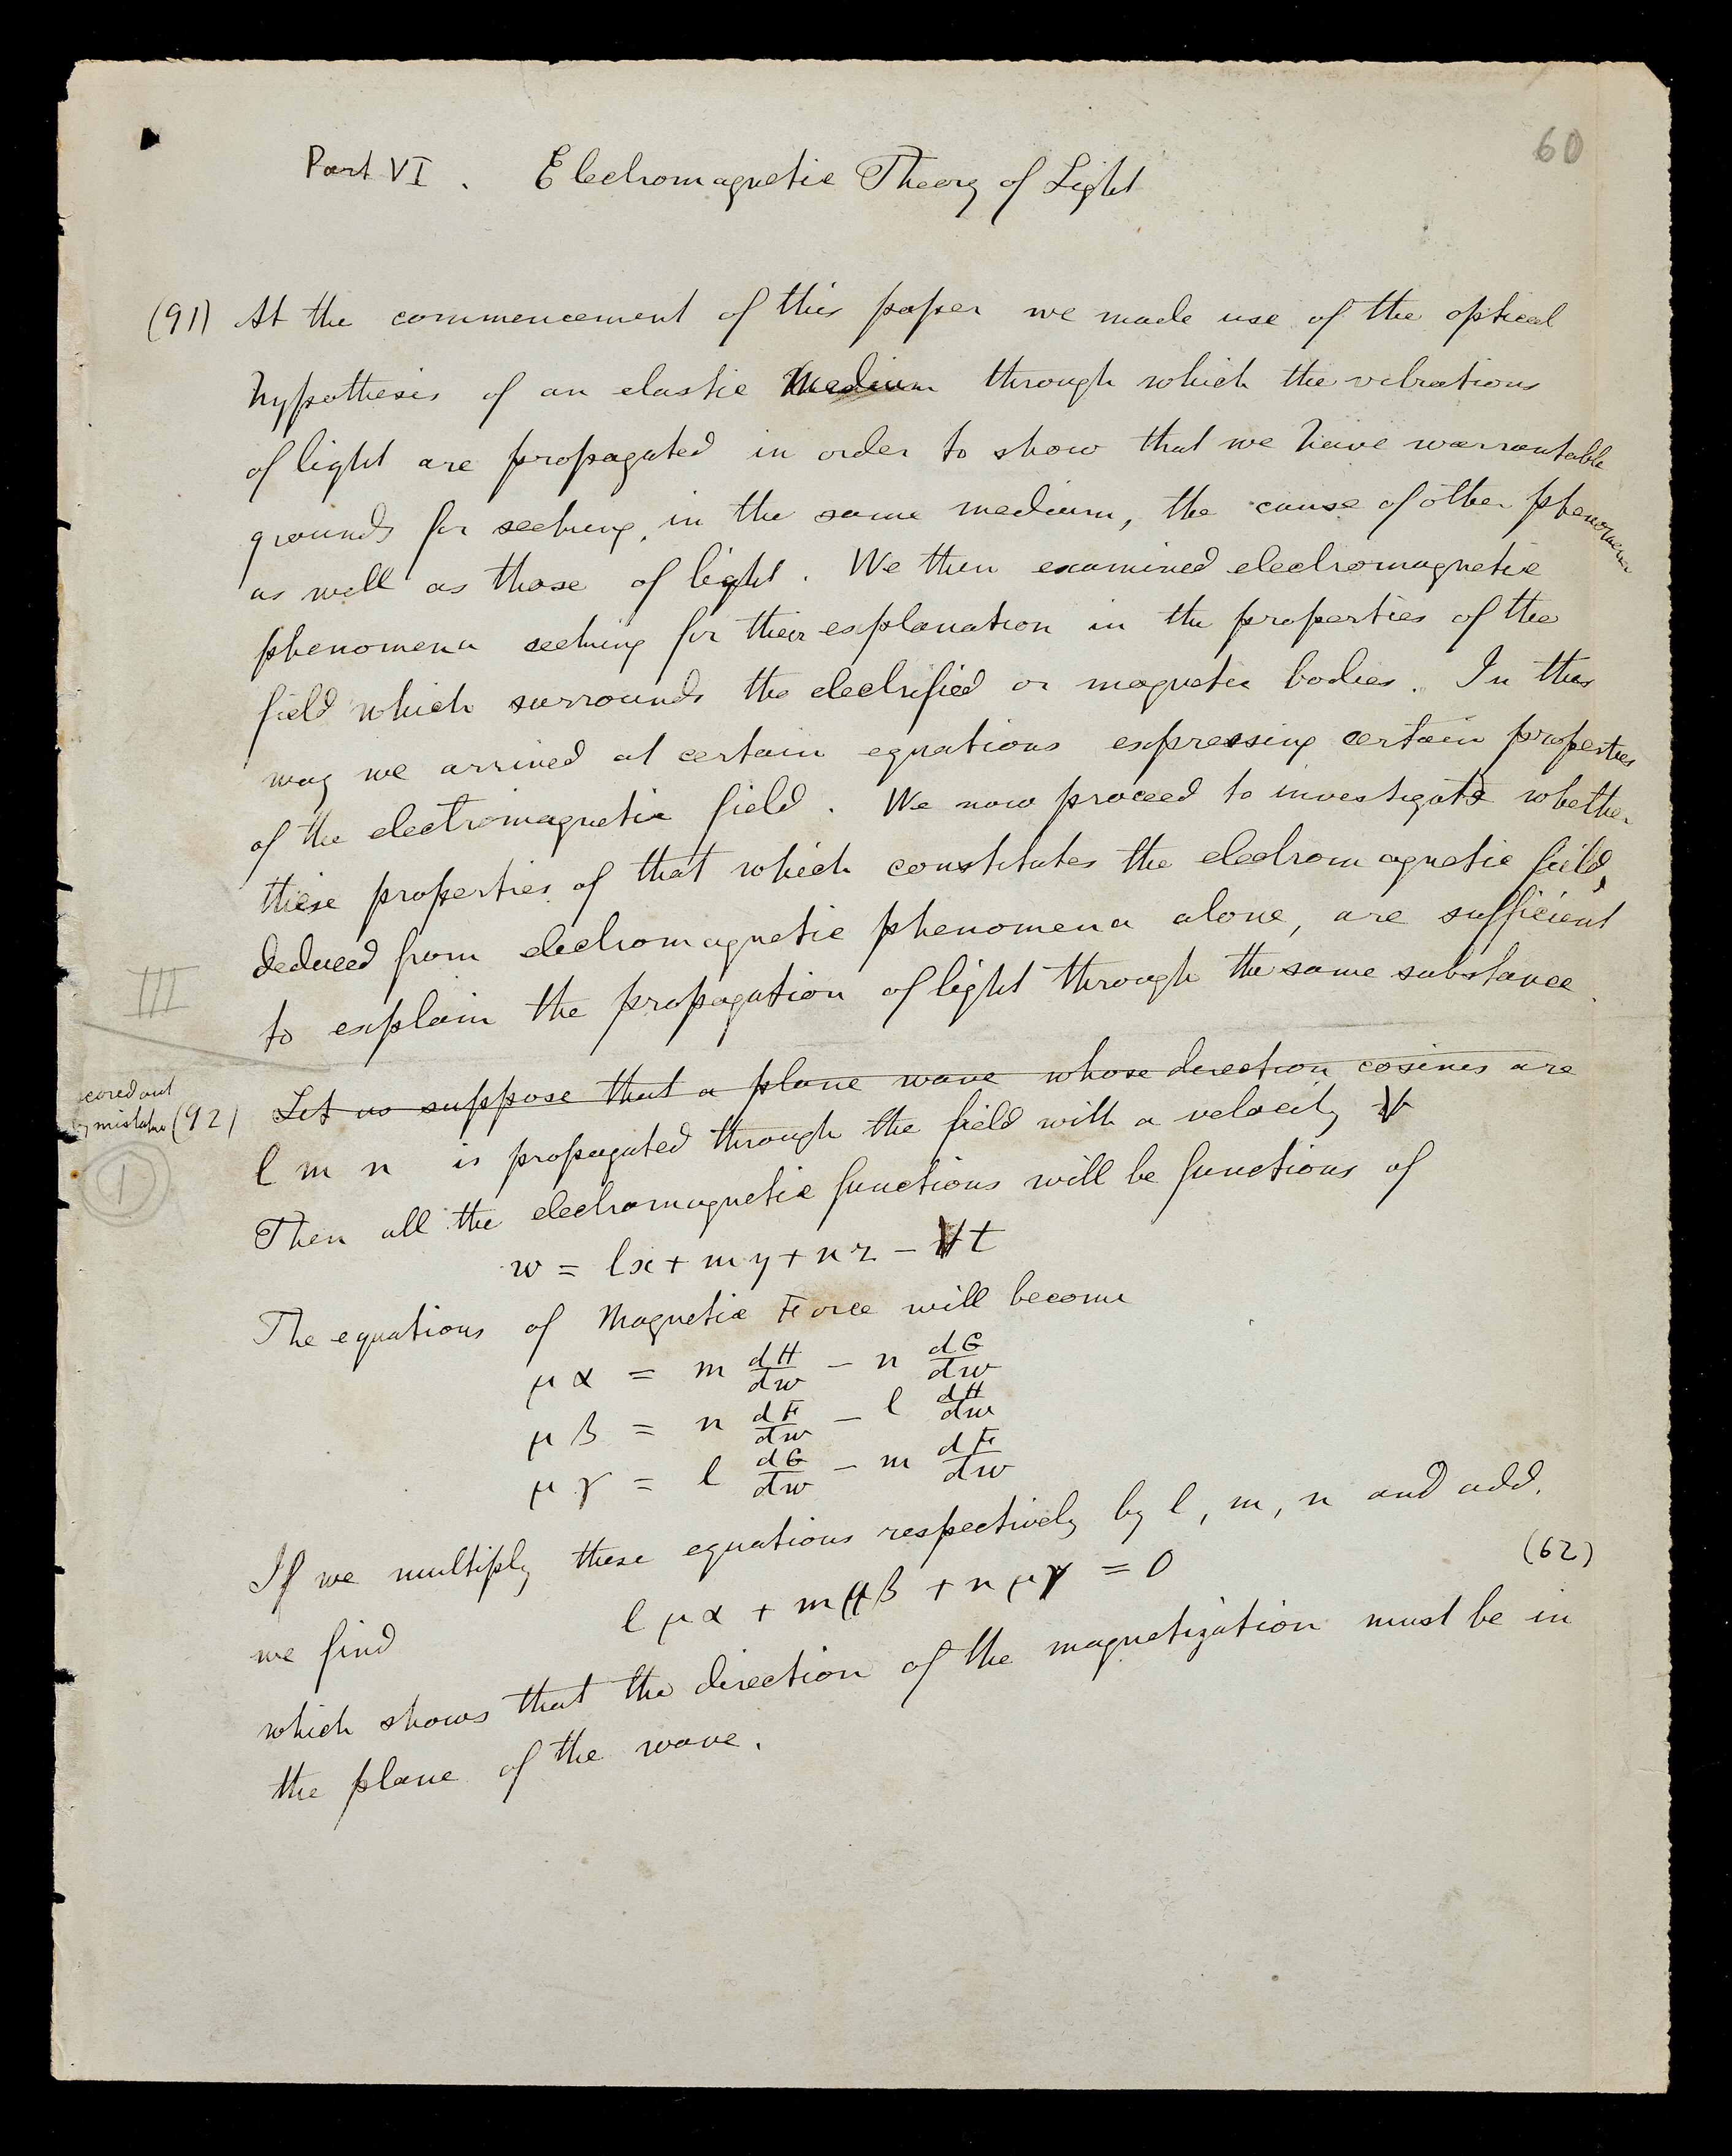 60
Part VI. Electromagnetic Theory of Light
(91) At the commencement of this paper we made use of the optical
hypothesis of an elastic Medium through which the vibrations
of light are propagated in order to show that we have warrantable
grounds for seeking, in the same medium, the cause of other phenomena
as well as those of light. We then examined electromagnetic
phenomena seeking for their explanation in the properties of the
field which surrounds the electrified or magnetic bodies. In this
way we arrived at certain equations expressing certain properties
of the electromagnetic field. We now proceed to investigate whether
these properties of that which constitutes the electromagnetic field,
deduced from electromagnetic phenomena alone, are sufficient
III
to explain the propagation of light through the same substance.
scored out
by mistake (92) Let us suppose that a plane wave whose direction cosines are
1
l m n is propagated through the field with a velocity V
Then all the electromagnetic functions will be functions of
w = lx + my + nz − Vt
The equations of Magnetic Force will become
μα = m dH/dw − n dG/dw
μβ = n dF/dw − l dH/dw
μγ = l dG/dw − m dF/dw
If we multiply these equations respectively by l, m, n and add,
(62)
we find l μα + m μβ + n μγ = 0
which shows that the direction of the magnetization must be in
the plane of the wave.